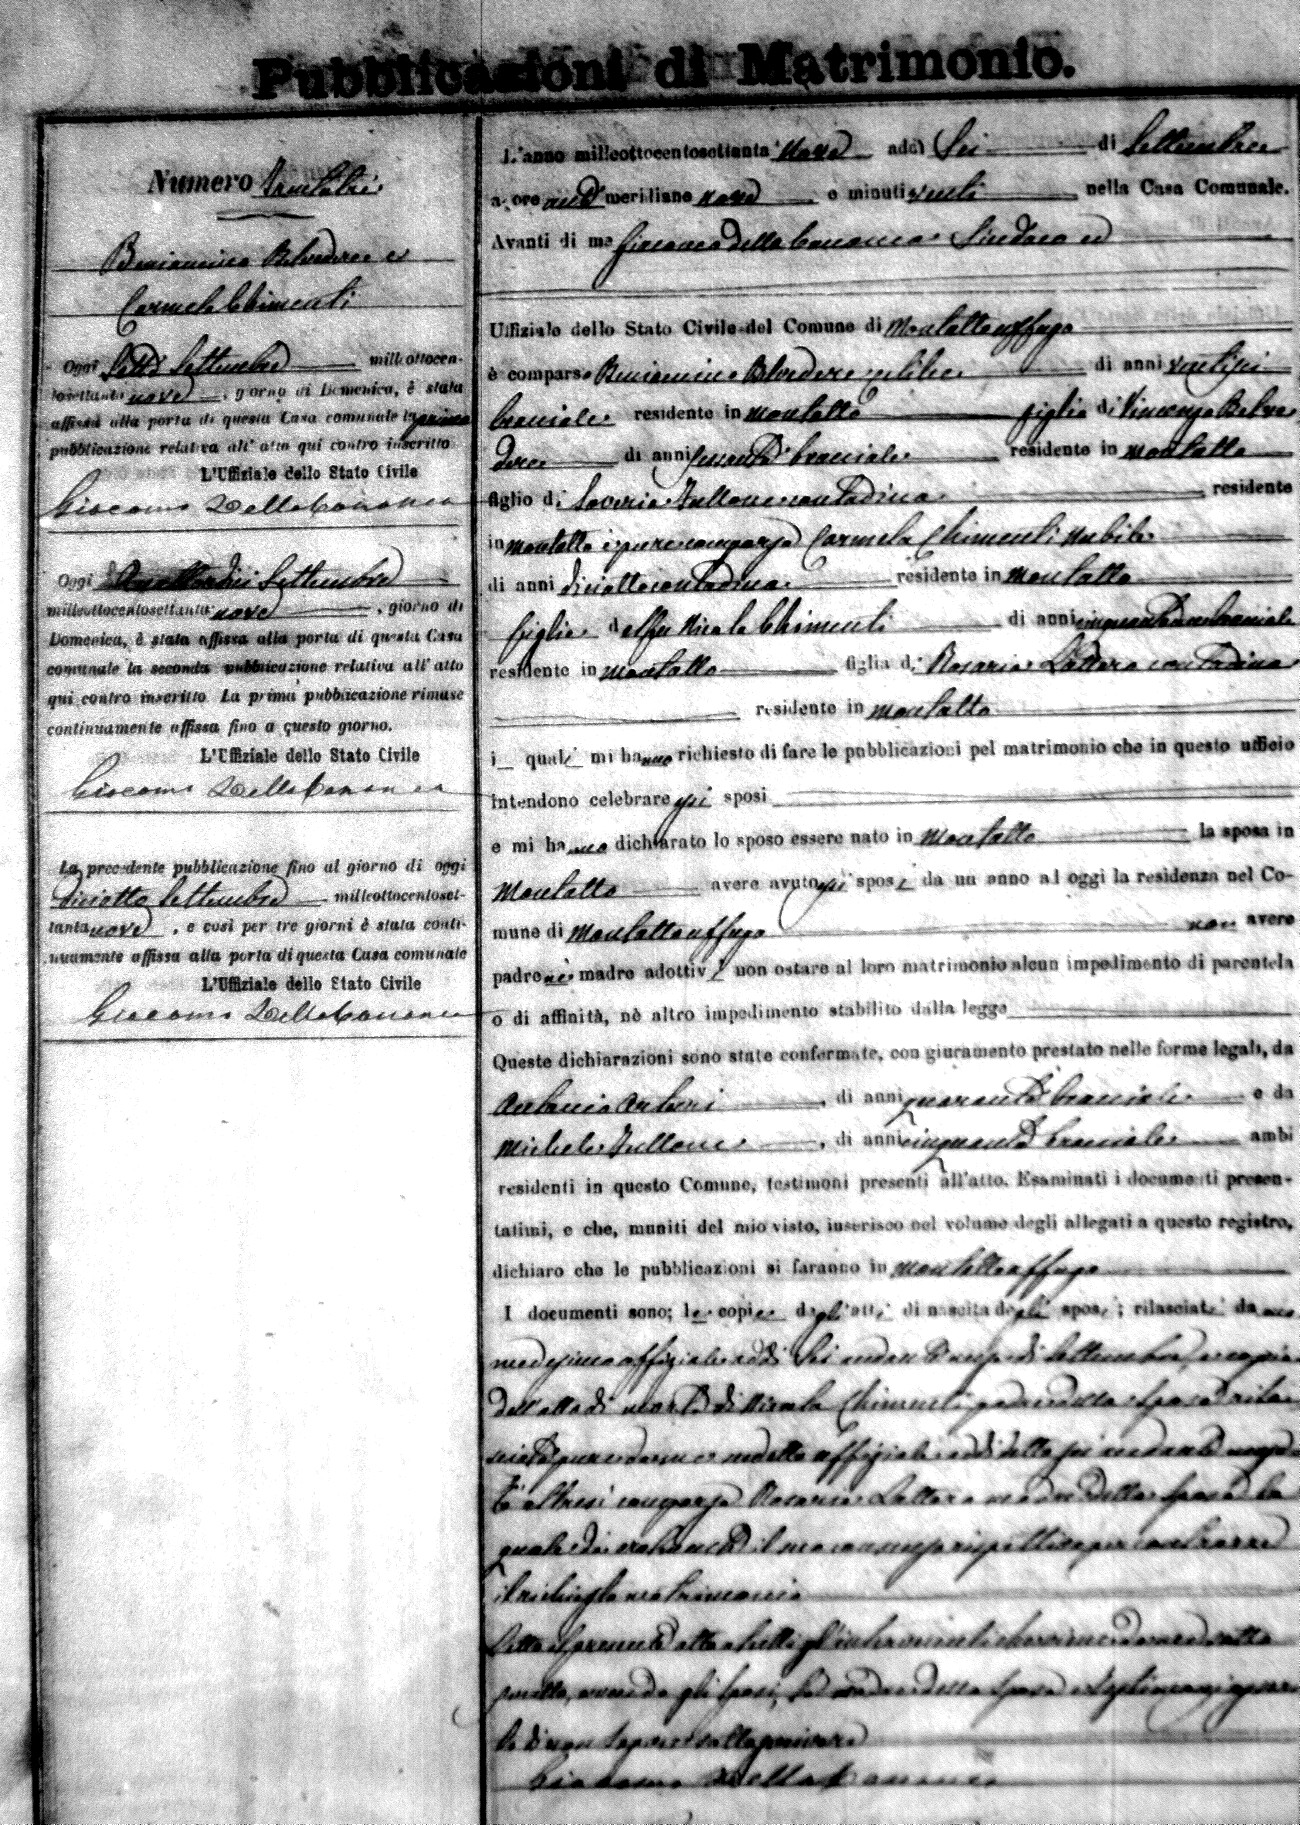 Pubblicazioni di Matrimonio.
Numero Trentatrè
Beniamino Belvedere e
Carmela Chimenti
Oggi Sette Settembre millottocen-
tosettanta nove, giorno di Domenica, è stata
affissa alla porta di questa Casa comunale la prima
pubblicazione relativa all'atto qui contro inscritto
L'Uffiziale dello Stato Civile
Giacomo Della Cananea
Oggi Quattordici Settembre
milleottocentosettanta nove, giorno di
Domenica, è stata affissa alla porta di questa Casa
comunale la seconda pubblicazione relativa all'atto
qui contro inscritto La prima pubblicazione rimase
continuamente affissa fino a questo giorno.
L'Uffiziale dello Stato Civile
Giacomo Della Cananea
La precedente pubblicazione fino al giorno di oggi
diciotto Settembre milleottocentoset-
tanta nove, e così per tre giorni è stata conti-
nuamente affissa alla porta di questa Casa comunale
L'Uffiziale dello Stato Civile
Giacomo Della Cananea
L'anno milleottocentosettanta nove addì Sei di Settembre
a ore anti meridiane nove e minuti venti nella Casa Comunale.
Avanti di me Giacomo della Cananea Sindaco ed
Uffiziale dello Stato Civile del Comune di Montalto uffugo
è comparso Beniamino Belvedere celibe di anni ventisei
bracciale residente in Montalto figlio di Vincenzo Belve
dere di anni sessanta bracciale residente in Montalto
figlio di Saveria Fullone contadina residente
in Montalto è pure comparsa Carmela Chimenti Nubile
di anni diciotto contadina residente in Montalto
figlia del fu Nicola Chimenti di anni cinquanta bracciale
residente in Montalto figlia di Rosaria Lattaro contadina
residente in Montalto
i quali mi hanno richiesto di fare le pubblicazioni pel matrimonio che in questo ufficio
intendono celebrare essi sposi
e mi hanno dichiarato lo sposo essere nato in Montalto la sposa in
Montalto avere avuto essi sposi da un anno ad oggi la residenza nel Co-
mune di Montalto uffugo non avere
padre nè madre adottivi non ostare al loro matrimonio alcun impedimento di parentela
o di affinità, nè altro impedimento stabilito dalla legge
Queste dichiarazioni sono state confermate, con giuramento prestato nelle forme legali, da
Antonio Arturi, di anni quaranta bracciale e da
Michele Fullone, di anni cinquanta bracciale ambi
residenti in questo Comune, testimoni presenti all'atto. Esaminati i documenti presen-
tatimi, e che, muniti del mio visto, inserisco nel volume degli allegati a questo registro,
dichiaro che le pubblicazioni si faranno in Montalto uffugo
I documenti sono; le copie degli atti di nascita degli sposi; rilasciate da me
medesimo uffiziale addì Sei andante mese di Settembre, e copia
dell'atto di morte di Nicola Chimenti padre della sposa rila
sciata pure da me sudetto uffiziale addì detto sei andante mese
È altresì comparsa Rosaria Lattaro madre della sposa la
quale dichiarò il suo consenso rispettivo per contrarre
il richiesto matrimonio
Letto il presente atto a tutti gl'intervenuti che viene da me sotto
scritto, avendo gli sposi, la madre della sposa e testimoni asseri
to di non sapere sottoscrivere
Giacomo Della Cananea